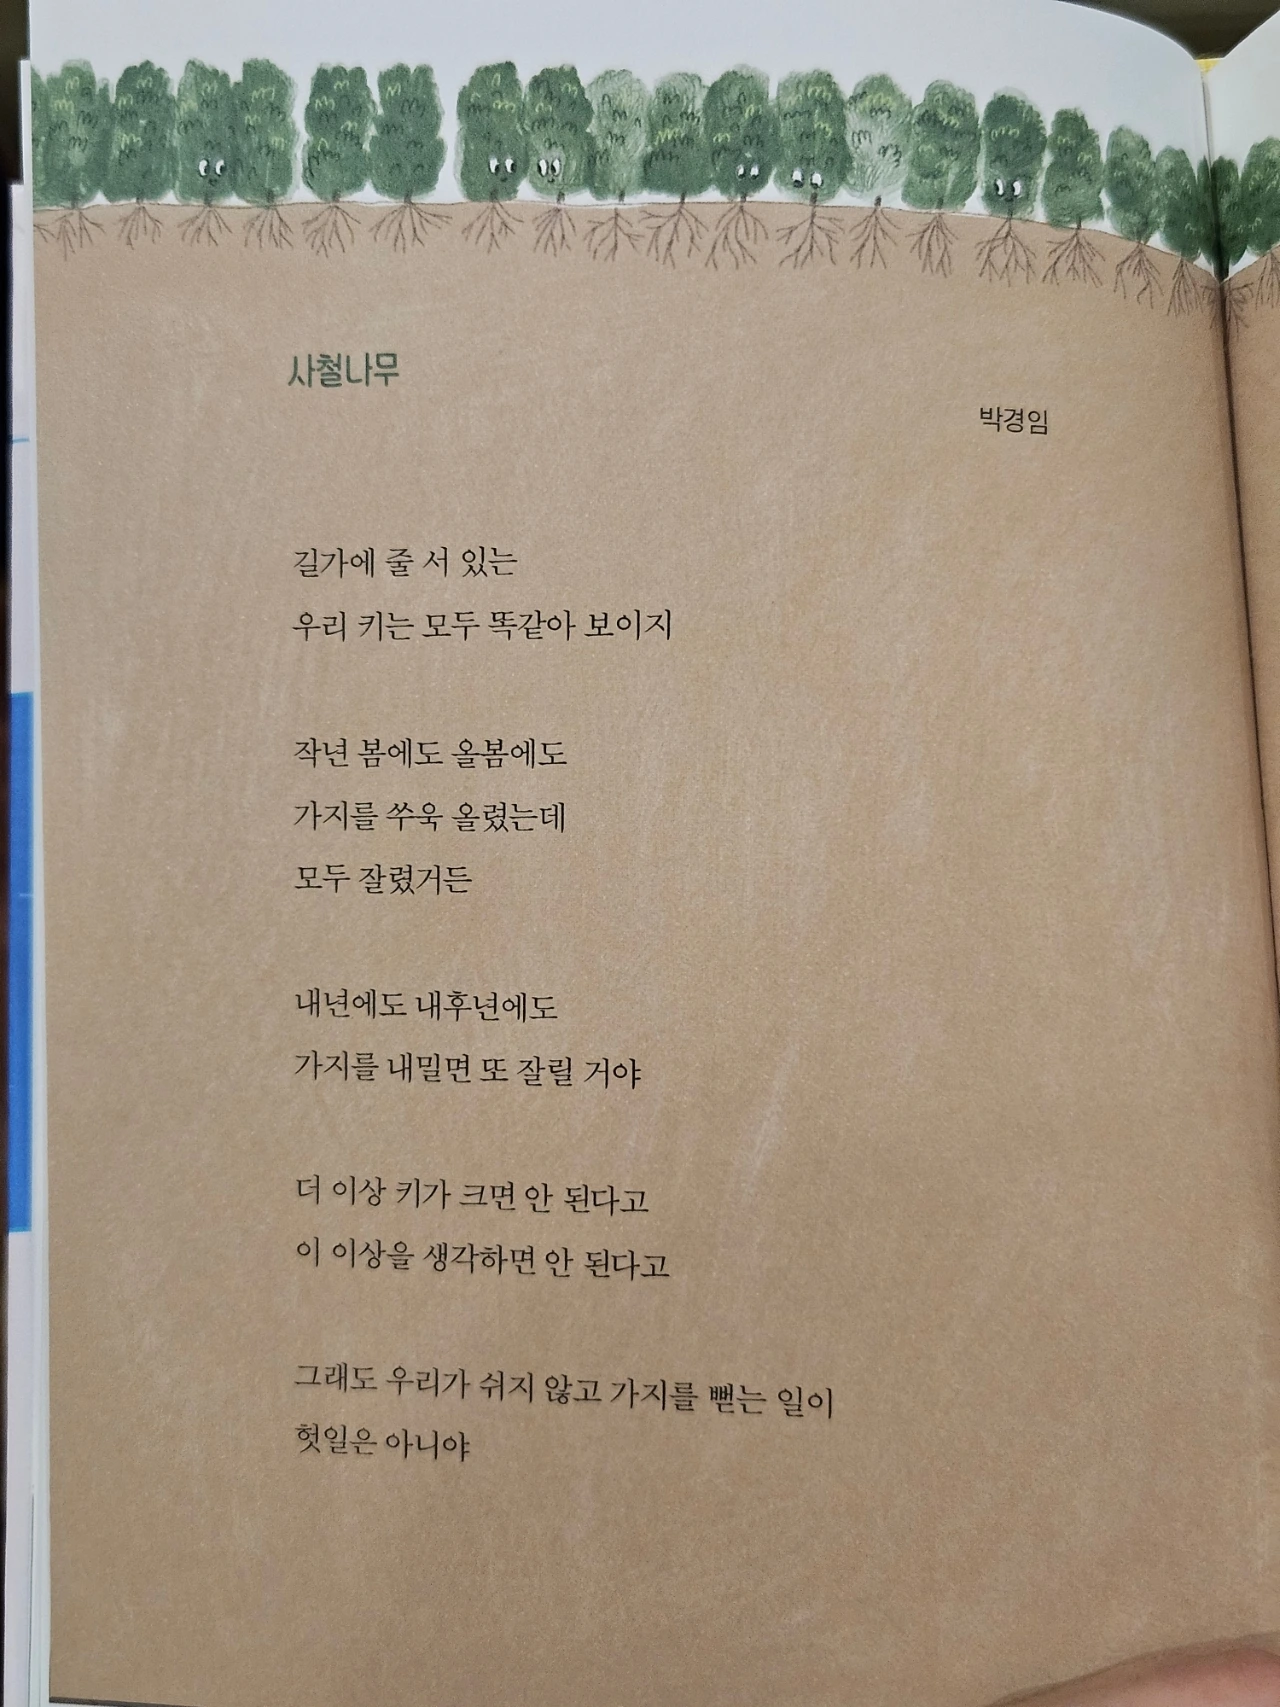 사철나무
박경임
길가에 줄 서 있는
우리 키는 모두 똑같아 보이지
작년 봄에도 올봄에도
가지를 쑤욱 올렸는데
모두 잘렸거든
내년에도 내후년에도
가지를 내밀면 또 잘릴 거야
더 이상 키가 크면 안 된다고
이 이상을 생각하면 안 된다고
그래도 우리가 쉬지 않고 가지를 뻗는 일이
헛일은 아니야